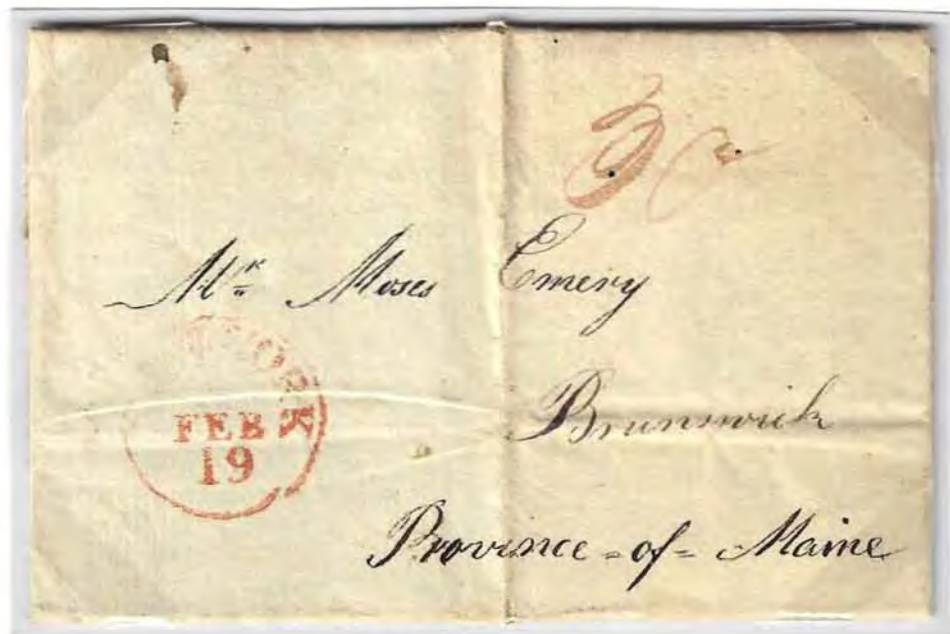 Mr Moses Emery
YORK
FEB
19
Brunswick
Province - of - Maine